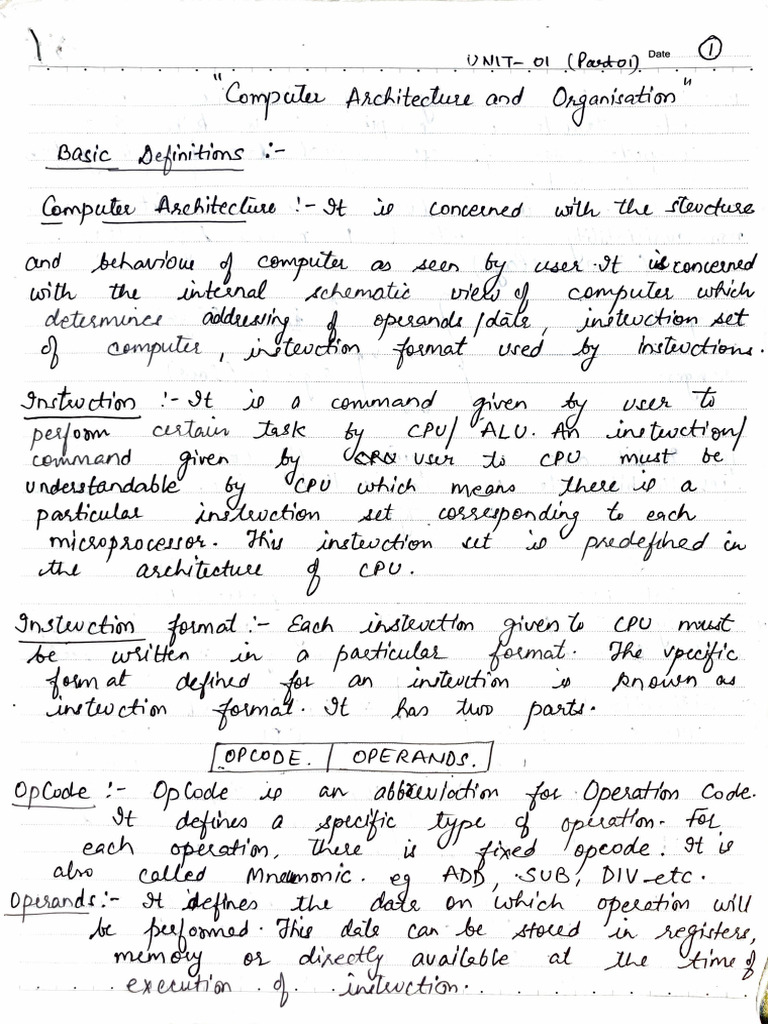 UNIT- 01 (Part01) Date 1
"Computer Architecture and Organisation"
Basic Definitions :-
Computer Architecture :- It is concerned with the structure
and behaviour of computer as seen by user. It is concerned
with the internal schematic view of computer which
determines addressing of operands/data, instruction set
of computer, instruction format used by instructions.
Instruction :- It is a command given by user to
perform certain task by CPU/ ALU. An instruction/
command given by user to CPU must be
understandable by CPU which means there is a
particular instruction set corresponding to each
microprocessor. This instruction set is predefined in
the architecture of CPU.
Instruction format :- Each instruction given to CPU must
be written in a particular format. The specific
format defined for an instruction is known as
instruction format. It has two parts.
OPCODE. | OPERANDS.
OpCode :- OpCode is an abbreviation for Operation Code.
It defines a specific type of operation. For
each operation, there is fixed opcode. It is
also called Mnemonic. eg ADD, SUB, DIV etc.
Operands :- It defines the data on which operation will
be performed. This data can be stored in registers,
memory or directly available at the time of
execution of instruction.